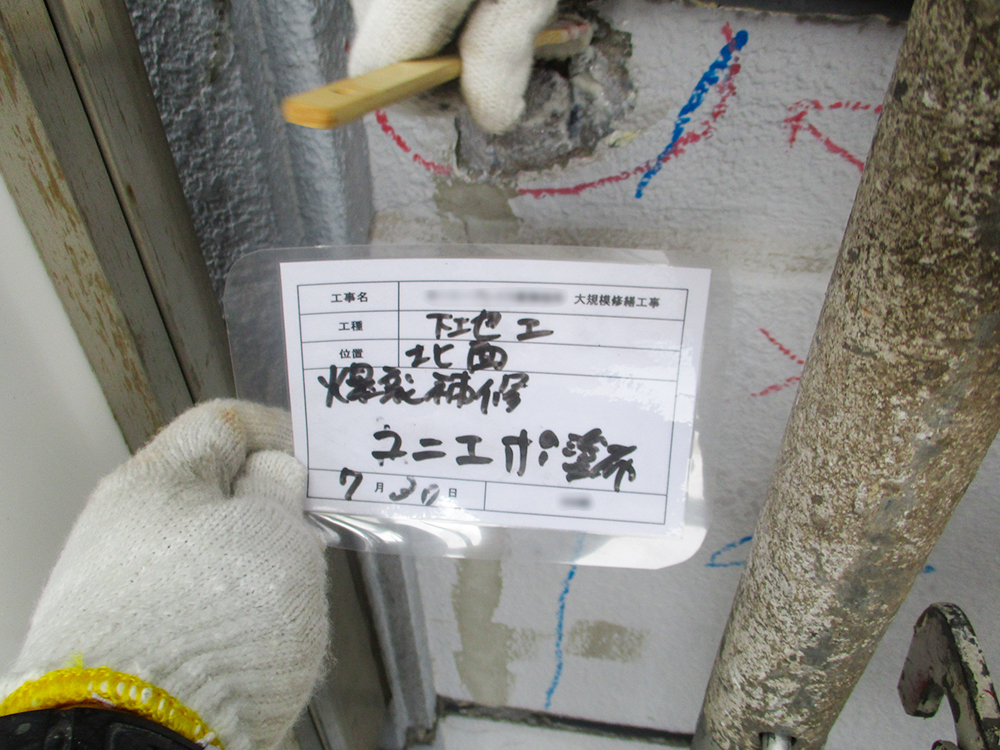 工事名 大規模修繕工事
工種 下地工
位置 北面
爆裂補修
ユニエポ塗布
7月30日